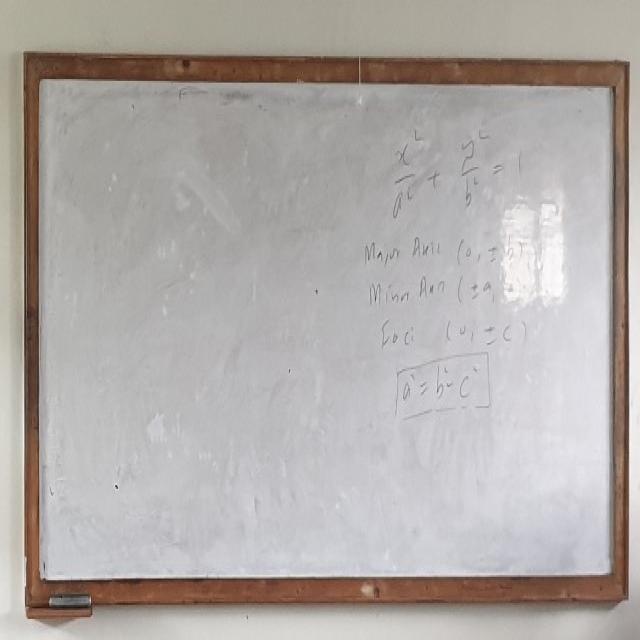 x²/a² + y²/b² = 1
Major Axis (0, ±b)
Minor Axis (±a,
Foci (0, ±c)
a² = b² - c²